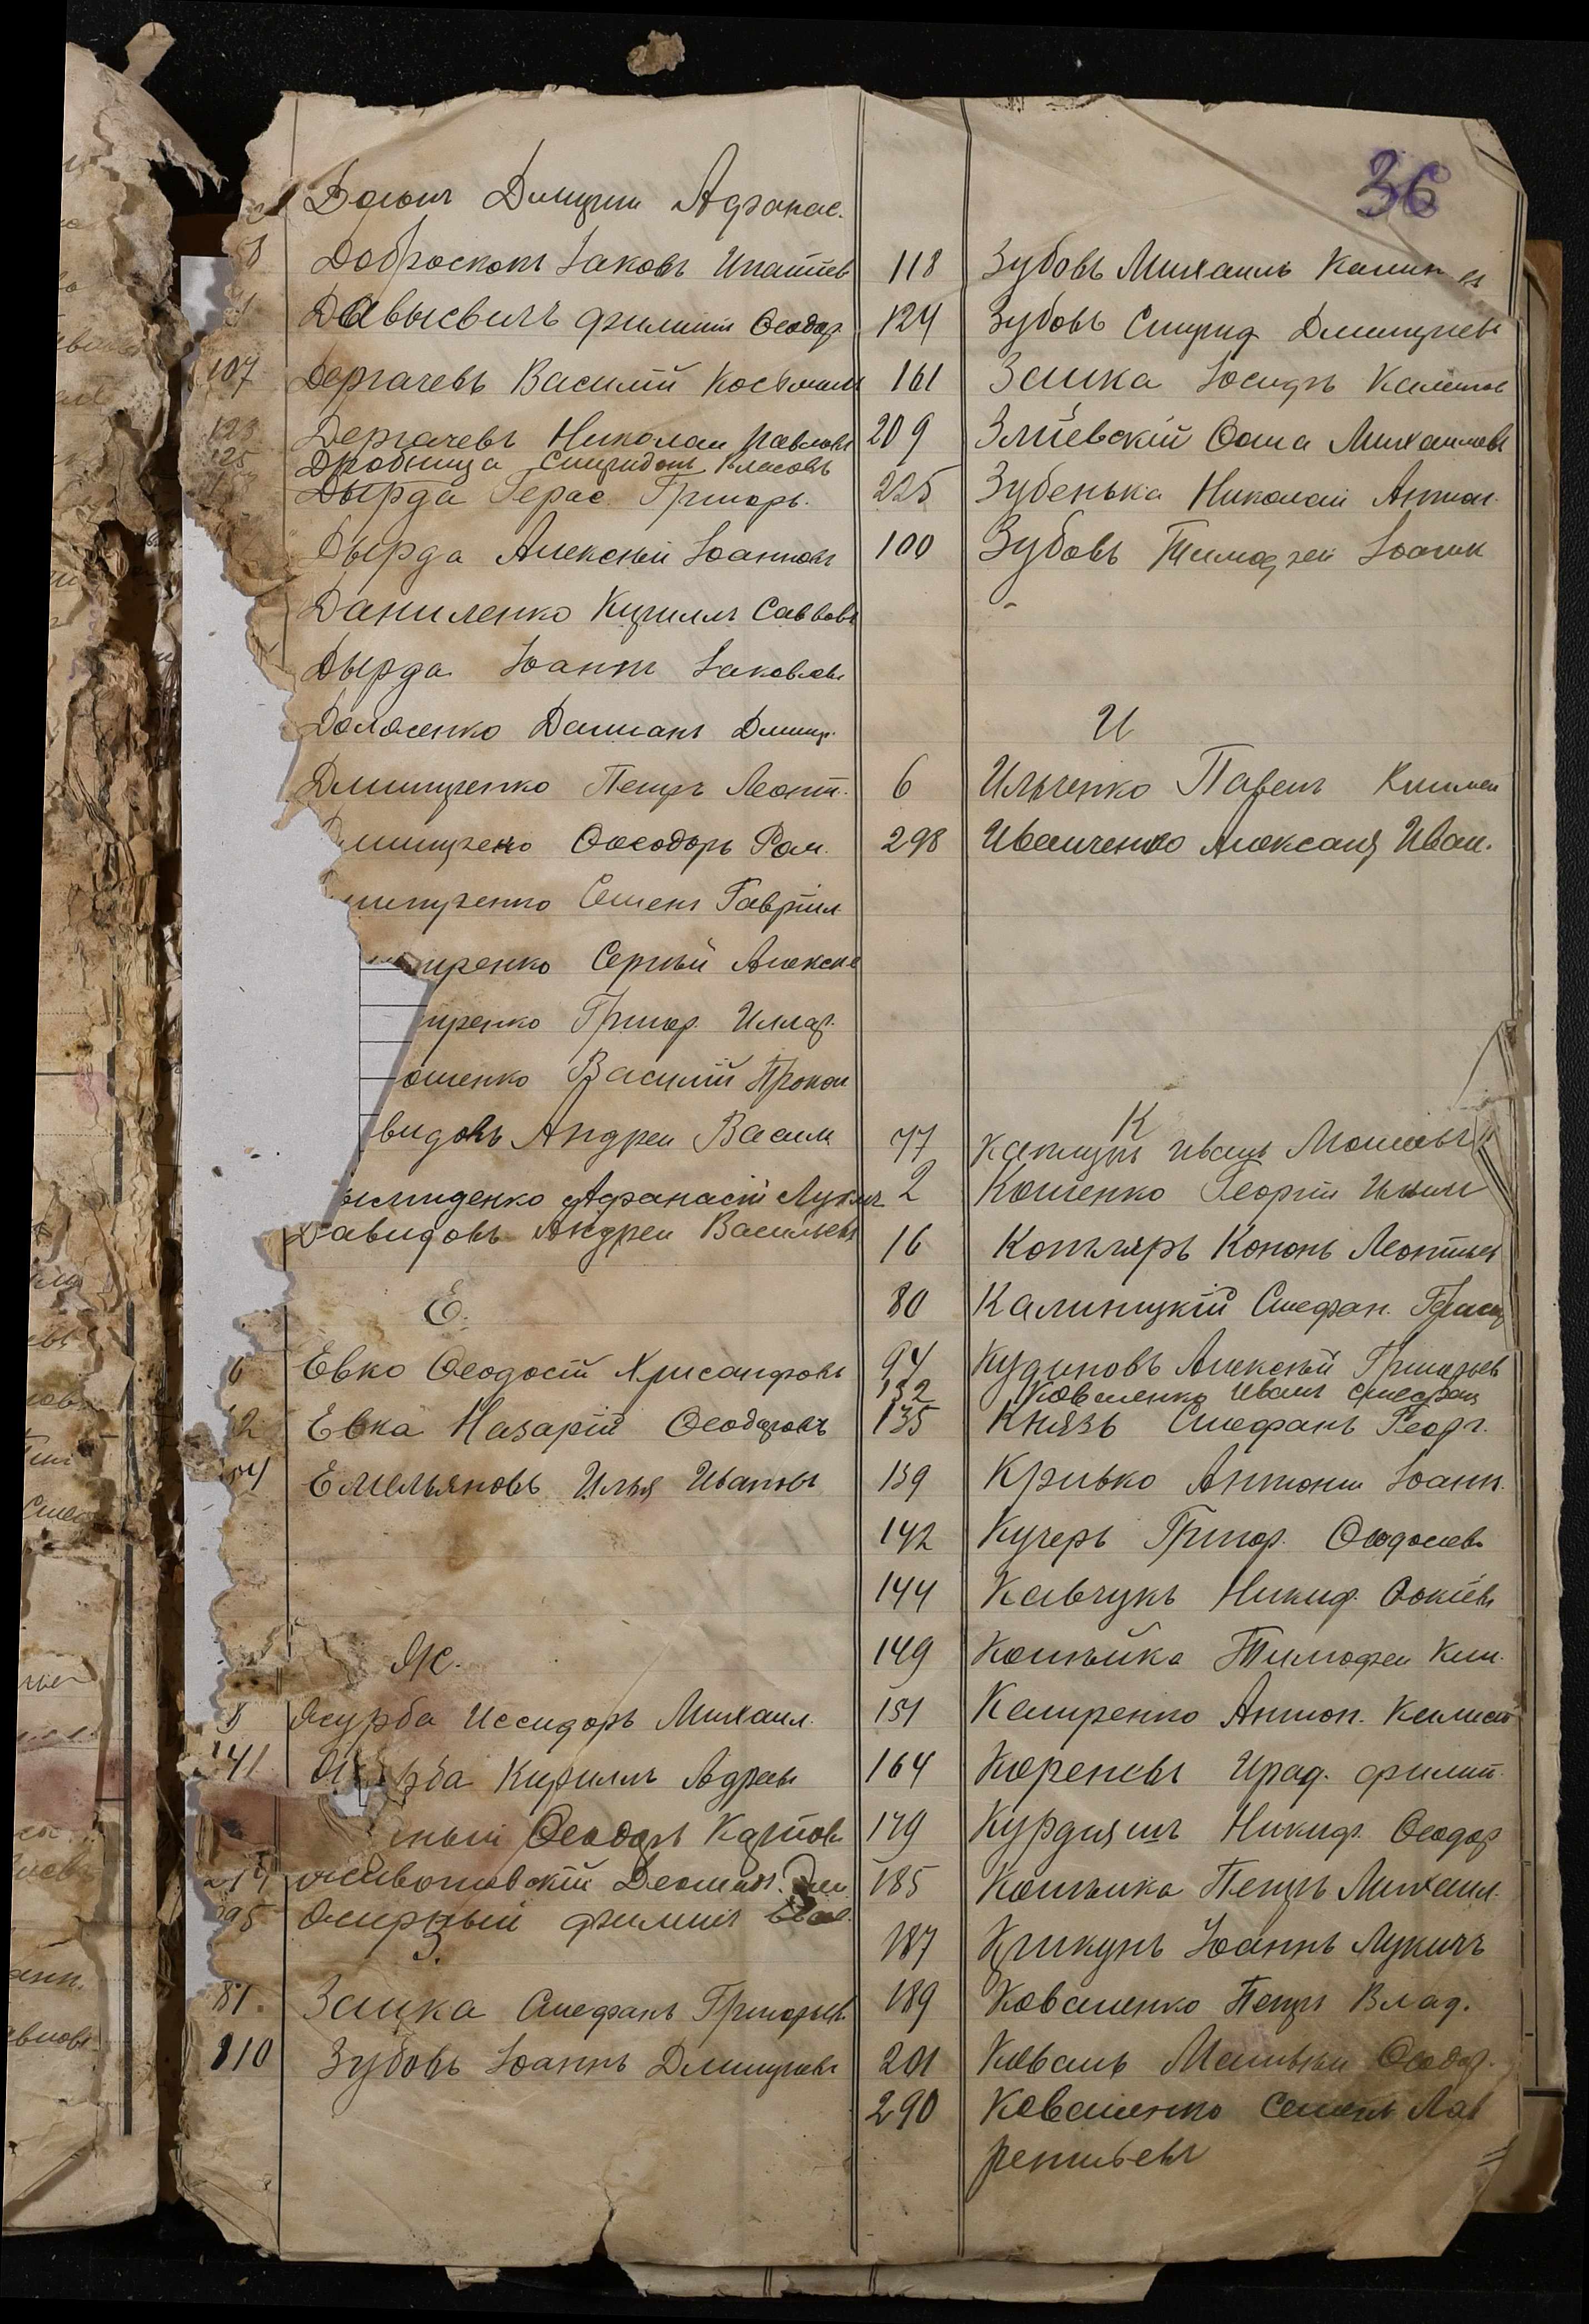 36
Дмитрій Афанас.
8 Доброскокъ Іаковъ Ипатіев
Давысвичъ Филиппъ Ѳеодор
107 Дергачевъ Василій Косьмичъ
123 Дергачевъ Николай Павловъ
125 Дробница Спиридонъ Власовъ
Дырда Герас. Григорь.
Дырда Алексѣй Іоанновъ
Даниленко Кириллъ Савовъ
Дырда Іоаннъ Іаковлевъ
Долженко Даміанъ Дмитр.
Дмитренко Петръ Леонт.
митренко Ѳеодоръ Ром.
митренко Семенъ Гавріил.
тренко Сергѣй Алексѣе
тренко Григор. Иллар.
ошенко Василій Прокоп
видовъ Андрей Васил
Афанасій Лукичъ
Давидовъ Андрей Васильевъ
Е.
6 Евко Ѳеодосій Хрисанфовъ
2 Евка Назарій Ѳеодоровъ
54 Емельяновъ Илья Ивановъ
Ж.
Журба Исидоръ Михаил.
141 Ж рба Кириллъ Адреев
ный Ѳеодоръ Карпов
Живописскій Деомид.
295 Жирный Филиппъ
З.
81. Заика Стефанъ Григорьев.
110 Зубовъ Іоаннъ Дмитріевъ
118 Зубовъ Михаилъ Калин
124 Зубовъ Спирид. Дмитріевъ
161 Заика Іосифъ Калинов
209 Зміевскій Ѳома Михайловъ
225 Зубенька Николай Антон.
100 Зубовъ Тимофей Іоанн
И
6 Ильченко Павелъ Климен
298 Иванченко Александ Иван.
К
77 Каплунъ Иванъ Моисеевъ
2 Кошенко Георгій Ильич
16 Котляръ Кононъ Леонтьев
80 Калиницкій Стефан.
94 Кудиновъ Алексѣй Григорьев
132 Коваленко Иванъ Стефан
135 Князь Стефанъ Георг.
139 Кривко Антоній Іоанн.
142 Кучеръ Григор. Ѳеодосіевъ
144 Кавчукъ Никиф. Ѳокіевъ
149 Копѣйка Тимофей Кли.
151 Камиренко Антон. Калист
164 Кореневъ Ирад. Филип.
179 Курдияшъ Никифр. Ѳеодор
185 Копѣйка Петръ Михаил.
187 Крикунъ Іоаннъ Лукичъ
189 Коваленко Петръ Влад.
201 Коваль Матвѣй Ѳеодор.
290 Коваленко Семенъ Лав
рентьевъ